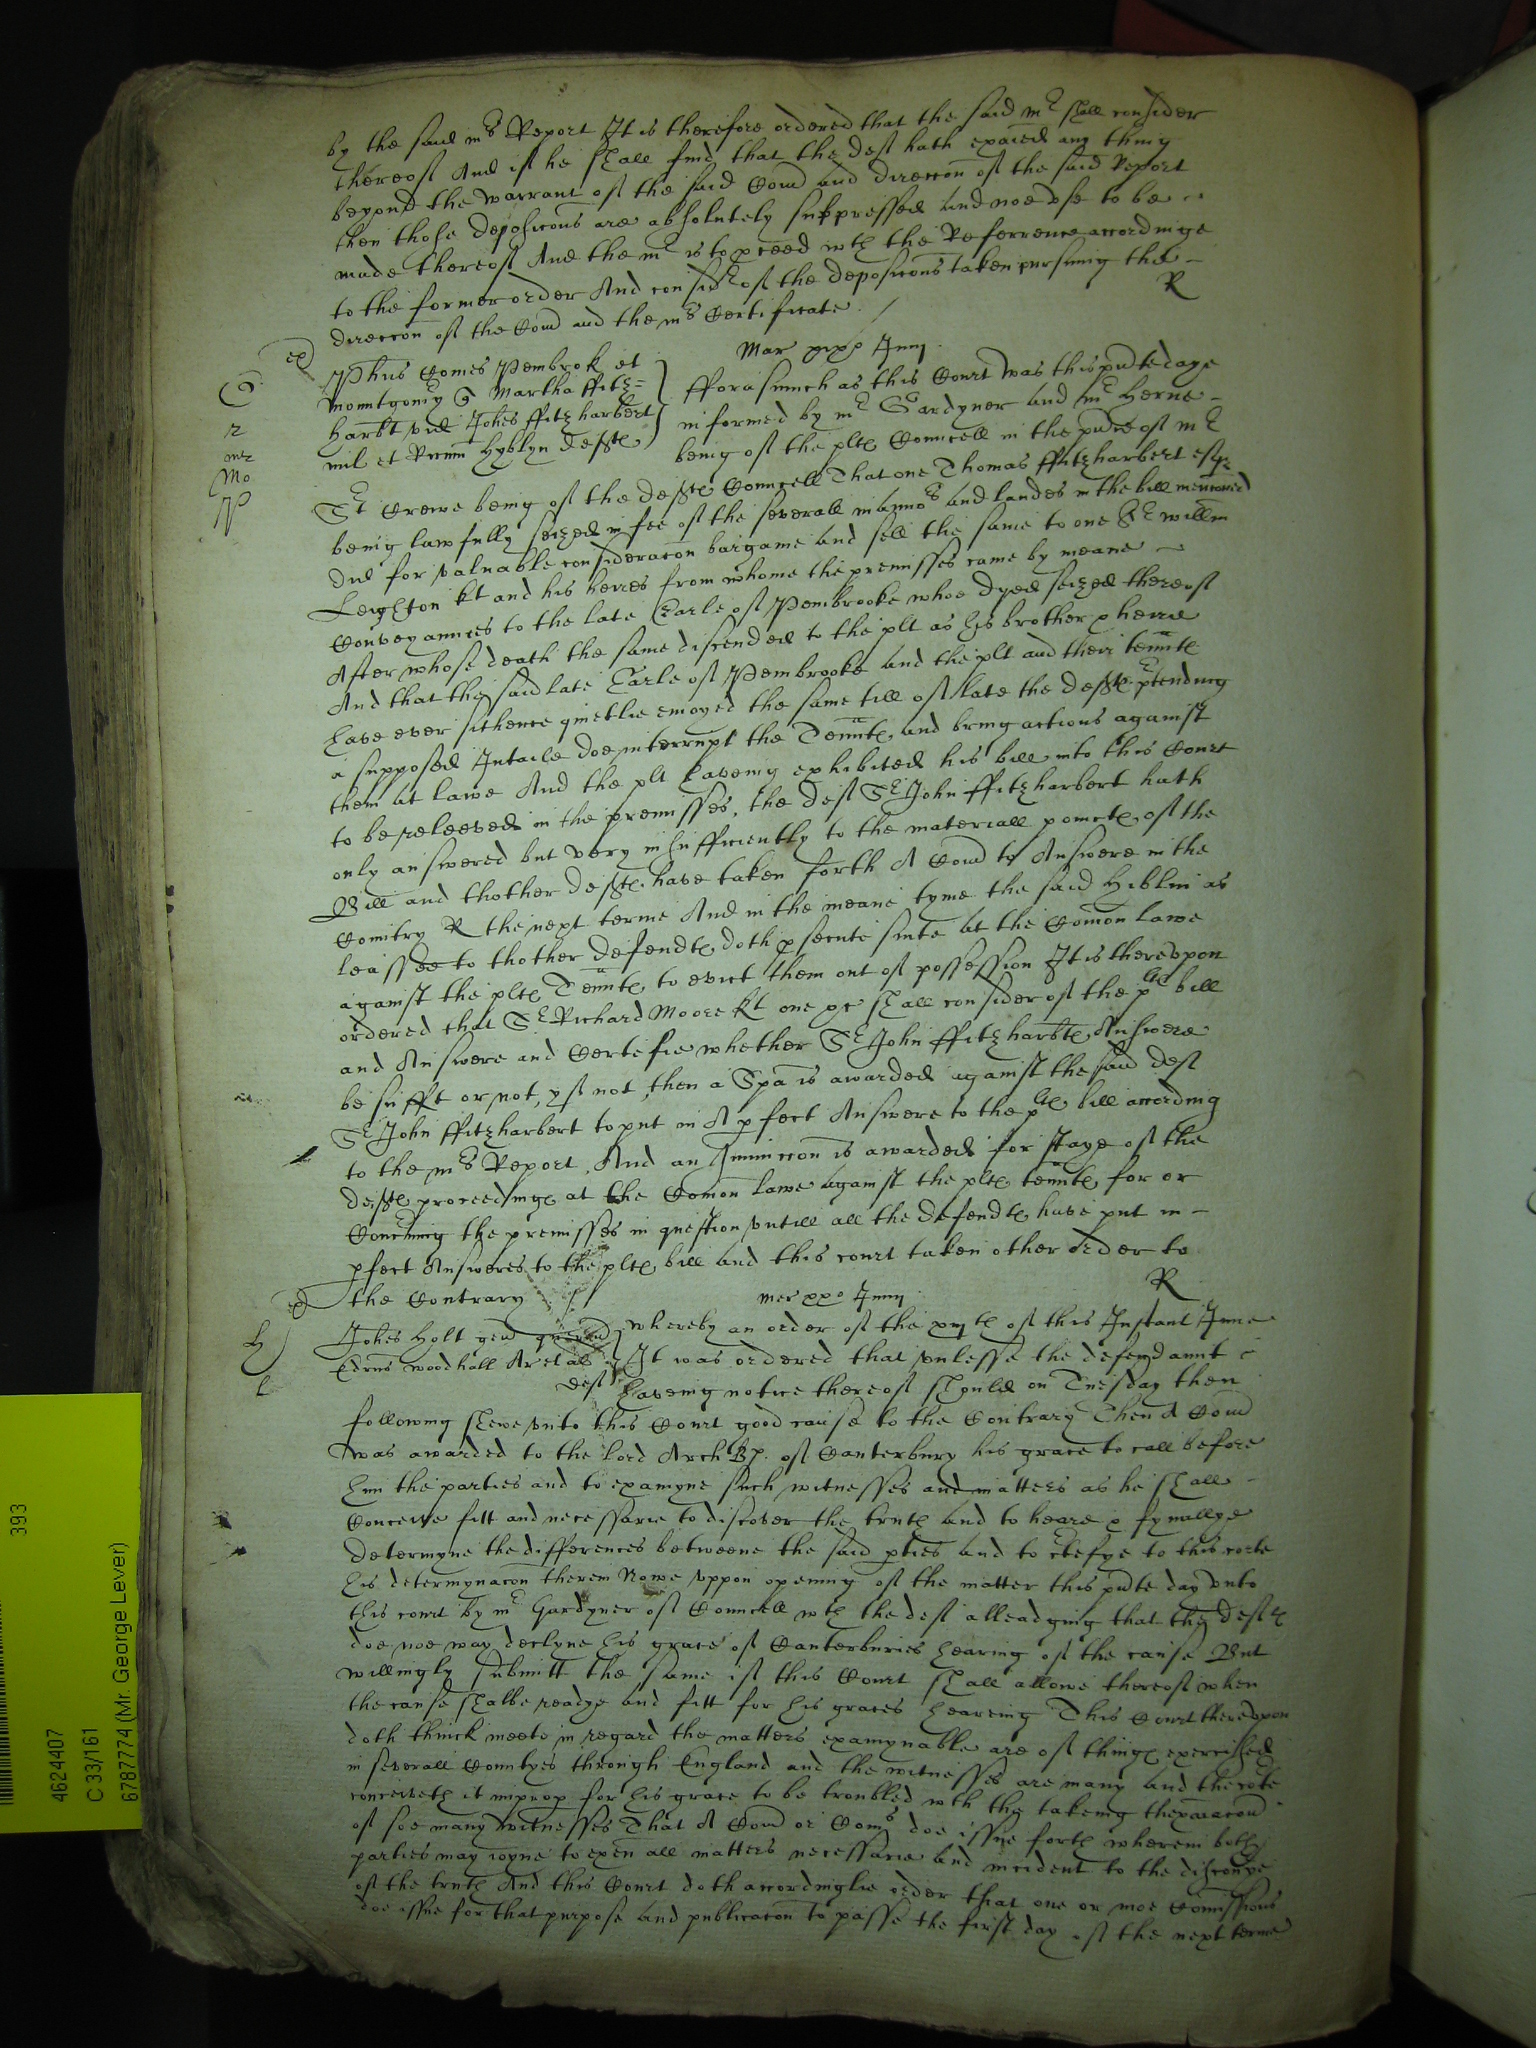 by the said mrs Report It is therefore ordered that the said mr shall consider
thereof And if he shall find that the deft hath exaied any thing
beyond the warrant of the said Comd and direccon of the said Report
then those deposicons are absolutely suppressed and noe vse to be
made thereof And the mr is to pceed wth the Referrence accordinge
to the former order And considr of the deposicons taken pursuing the
direccon of the Comd and the mrs Certificate
R
Mar xixo Junij
Phus Comes Pembrok et
Mountgomy Martha ffitz=
harbt vid Johes ffitzharbert
mil et Ricum Hyblyn defte
fforasmuch as this Court was this pnte daye
informed by mr Gardyner and mr Herne
being of the plte Councell in the pnce of mr
St Crewe being of the defte Councell That one Thomas ffitzharbert esqr
being lawfully seized in fee of the severall mannors and landes in the bill menconed
did for valuable consideracon bargaine and sell the same to one Sr willm
Leighton kt and his heires from whome the premisses came by meane
Conveyannces to the late Earle of Pembrooke whoe dyed seized thereof
After whose death the same discended to the plt as his brother & heire
And that the said late Earle of Pembrooke and the plt and their tennte
have ever sithence quietlie enioyed the same till of late the defte ptending
a supposed Intaile doe interrupt the Tennte and bring actions against
them at lawe And the plt haveing exhibited his bill into this Court
to be releeved in the premisses, the deft Sr John ffitzharbert hath
only answered but very insufficiently to the materiall pointe of the
Bill and thother defte have taken forth A Comd to Answere in the
Country R the next terme And in the meane tyme the said Hiblin as
leassee to thother defendte doth psecute suite at the Comon lawe
against the plte Tennte to evict them out of possession It is therevpon
ordered that Sr Richard Moore kt one &c shall consider of the plte bill
and Answere and Certefie whether Sr John ffitzharbte Answere
be sufft or not, yf not, then a Spa is awarded against the said deft
Sr John ffitzharbert to put in A pfect Answere to the plte bill according
to the mrs Report, And an Iniunccon is awarded for staye of the
defte proceedinge at the Comon lawe against the plte tennte for or
Concerning the premisses in question vntill all the defendte have put in
pfect Answeres to the plte bill and this court taken other order to
the Contrary
R
mer xxo Junij
Johes Holt gen
Edrus woodhall Ar et al
deft
whereby an order of the xvjth of this Instant June
It was ordered that vnlesse the defendannt
haveing notice thereof should on Tuisday then
following shewe vnto this Court good cause to the Contrary Then A Comd
was awarded to the lord Arch Bp. of Canterbury his grace to call before
him the parties and to examyne such witnesses and matters as he shall
Conceive fitt and necessarie to discover the truth and to heare & fynallye
determyne the differences betweene the said pties and to ctefye to this corte
his determynacon therein Nowe vppon opening of the matter this pnte day vnto
this court by mr Gardyner of Councell wth the deft alleadging that the defte
doe noe way declyne his grace of Canterburies hearing of the cause But
willingly submitt the same if this Court shall allowe thereof when
the cause shalbe readye and fitt for his graces heareing This Court therevpon
doth thinck meete in regard the matters examynable are of thinge exercised
in severall Countyes through England and the witnesses are many and the corte
conceiveth it improp for his grace to be troubled wth the takeing thexaiacon
of soe many witnesses That A Comd or Comrs doe issue forth wherein both
parties may ioyne to exen all matters necessarie and incident to the discovye
of the truth And this Court doth accordinglie order that one or moe Comissions
doe issue for that purpose and publicacon to passe the first day of the next terme
393
4624407
C 33/161
6787774 (Mr. George Lever)